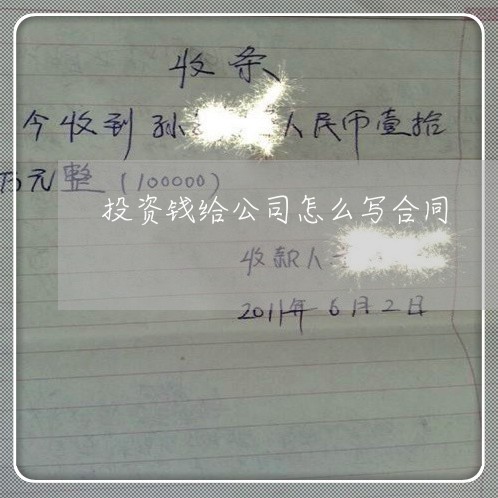 收条
今收到孙 人民币壹拾
万元整(100000)
投资钱给公司怎么写合同
收款人
2011年6月2日